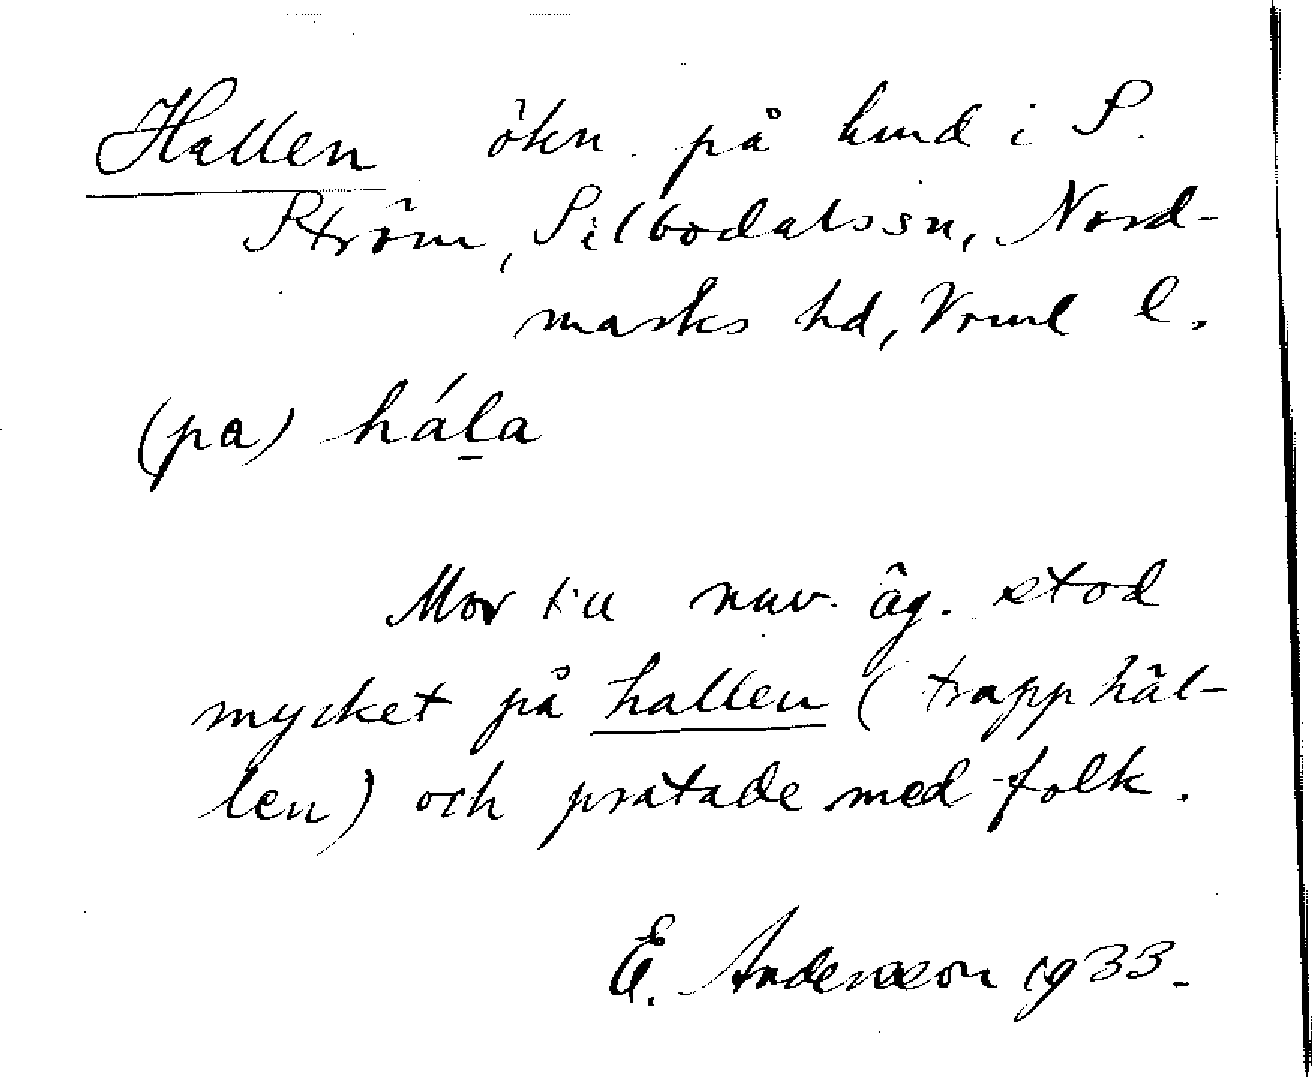 Hallen ökn. på lund i S.
Ström, Silbodalssn, Nord-
marks hd, Vrml l.
(pa) háḻa
Mor till nuv. äg. stod
mycket på hallen (trapphäl-
len) och pratade med folk.
E. Andersson 1933.